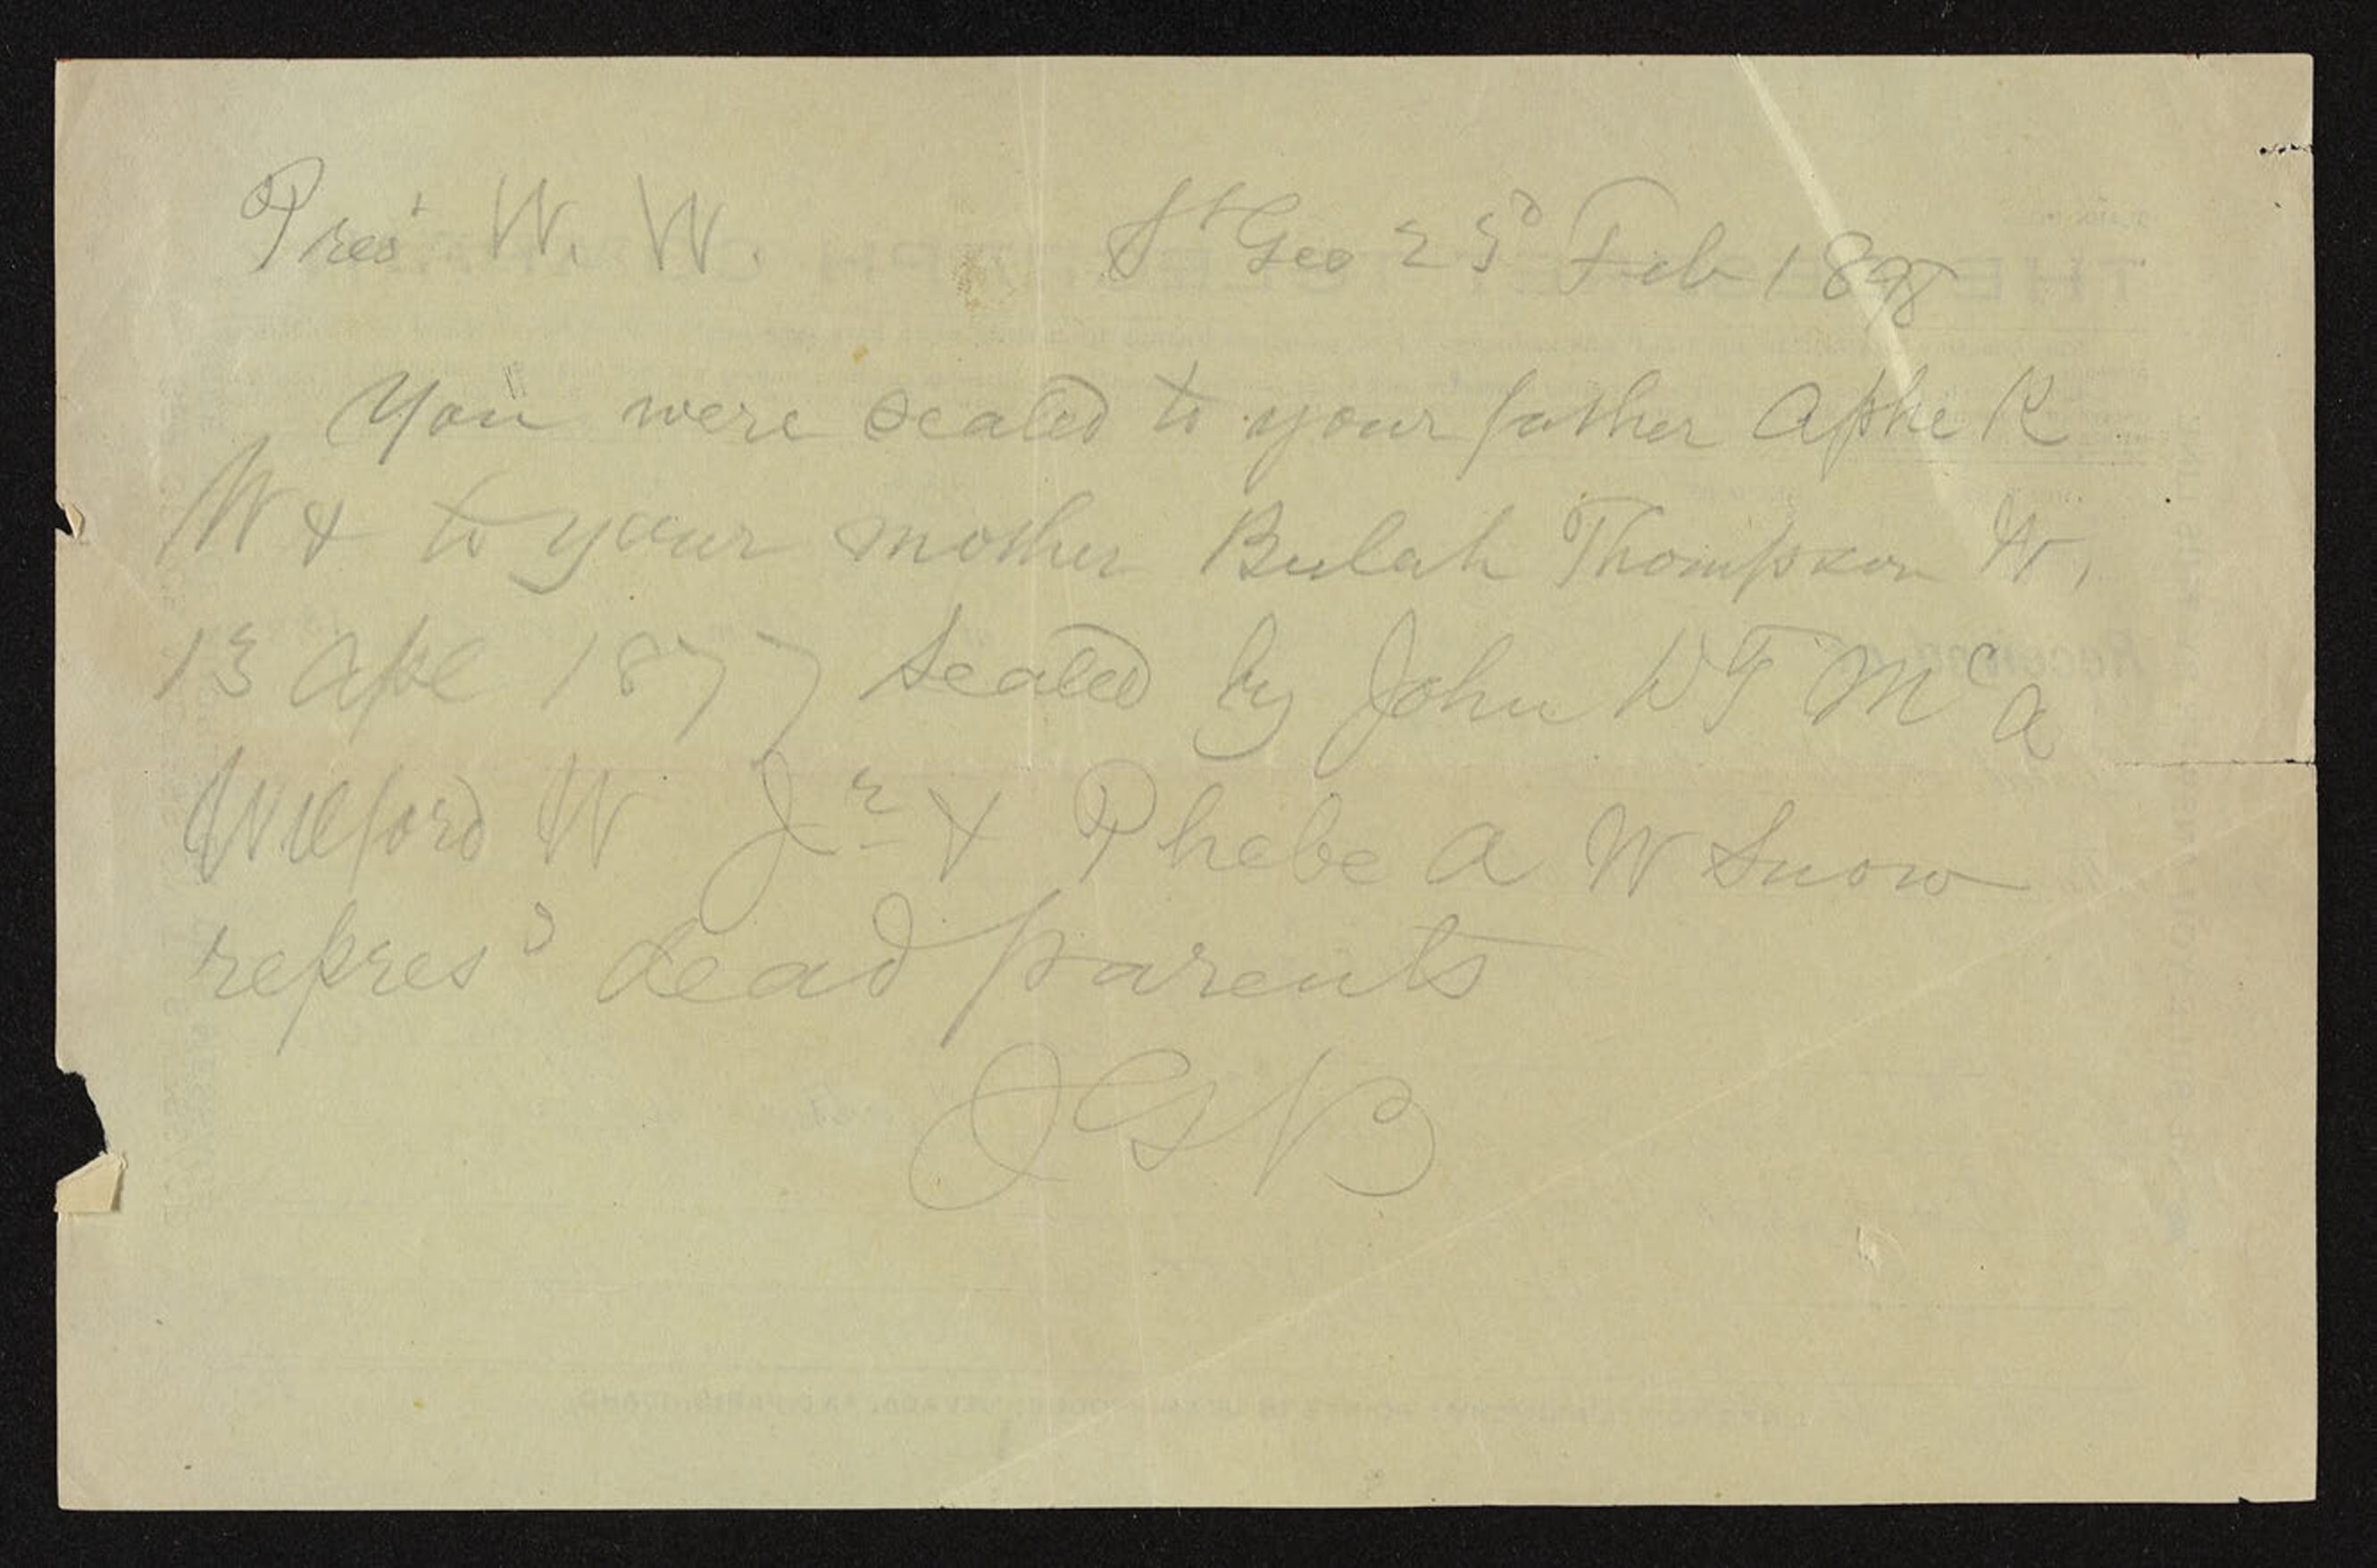 Pres't W. W. St Geo 23d Feb 1898
You were sealed to your father Aphek
W & to your mother Bulah Thompson W.
13 Apl 1877 sealed by John D T McA
Wilford W Jr & Phebe A W Snow
represd dead parents